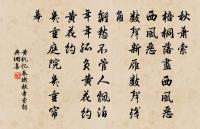 秋蕭索
梧桐落盡西風惡
西風惡
數聲新雁數聲殘
角
離愁不管人飄泊
年年孤負黃花約
黃花約
幾重庭院幾重簾
幕
黃機憶秦娥秋蕭索詞